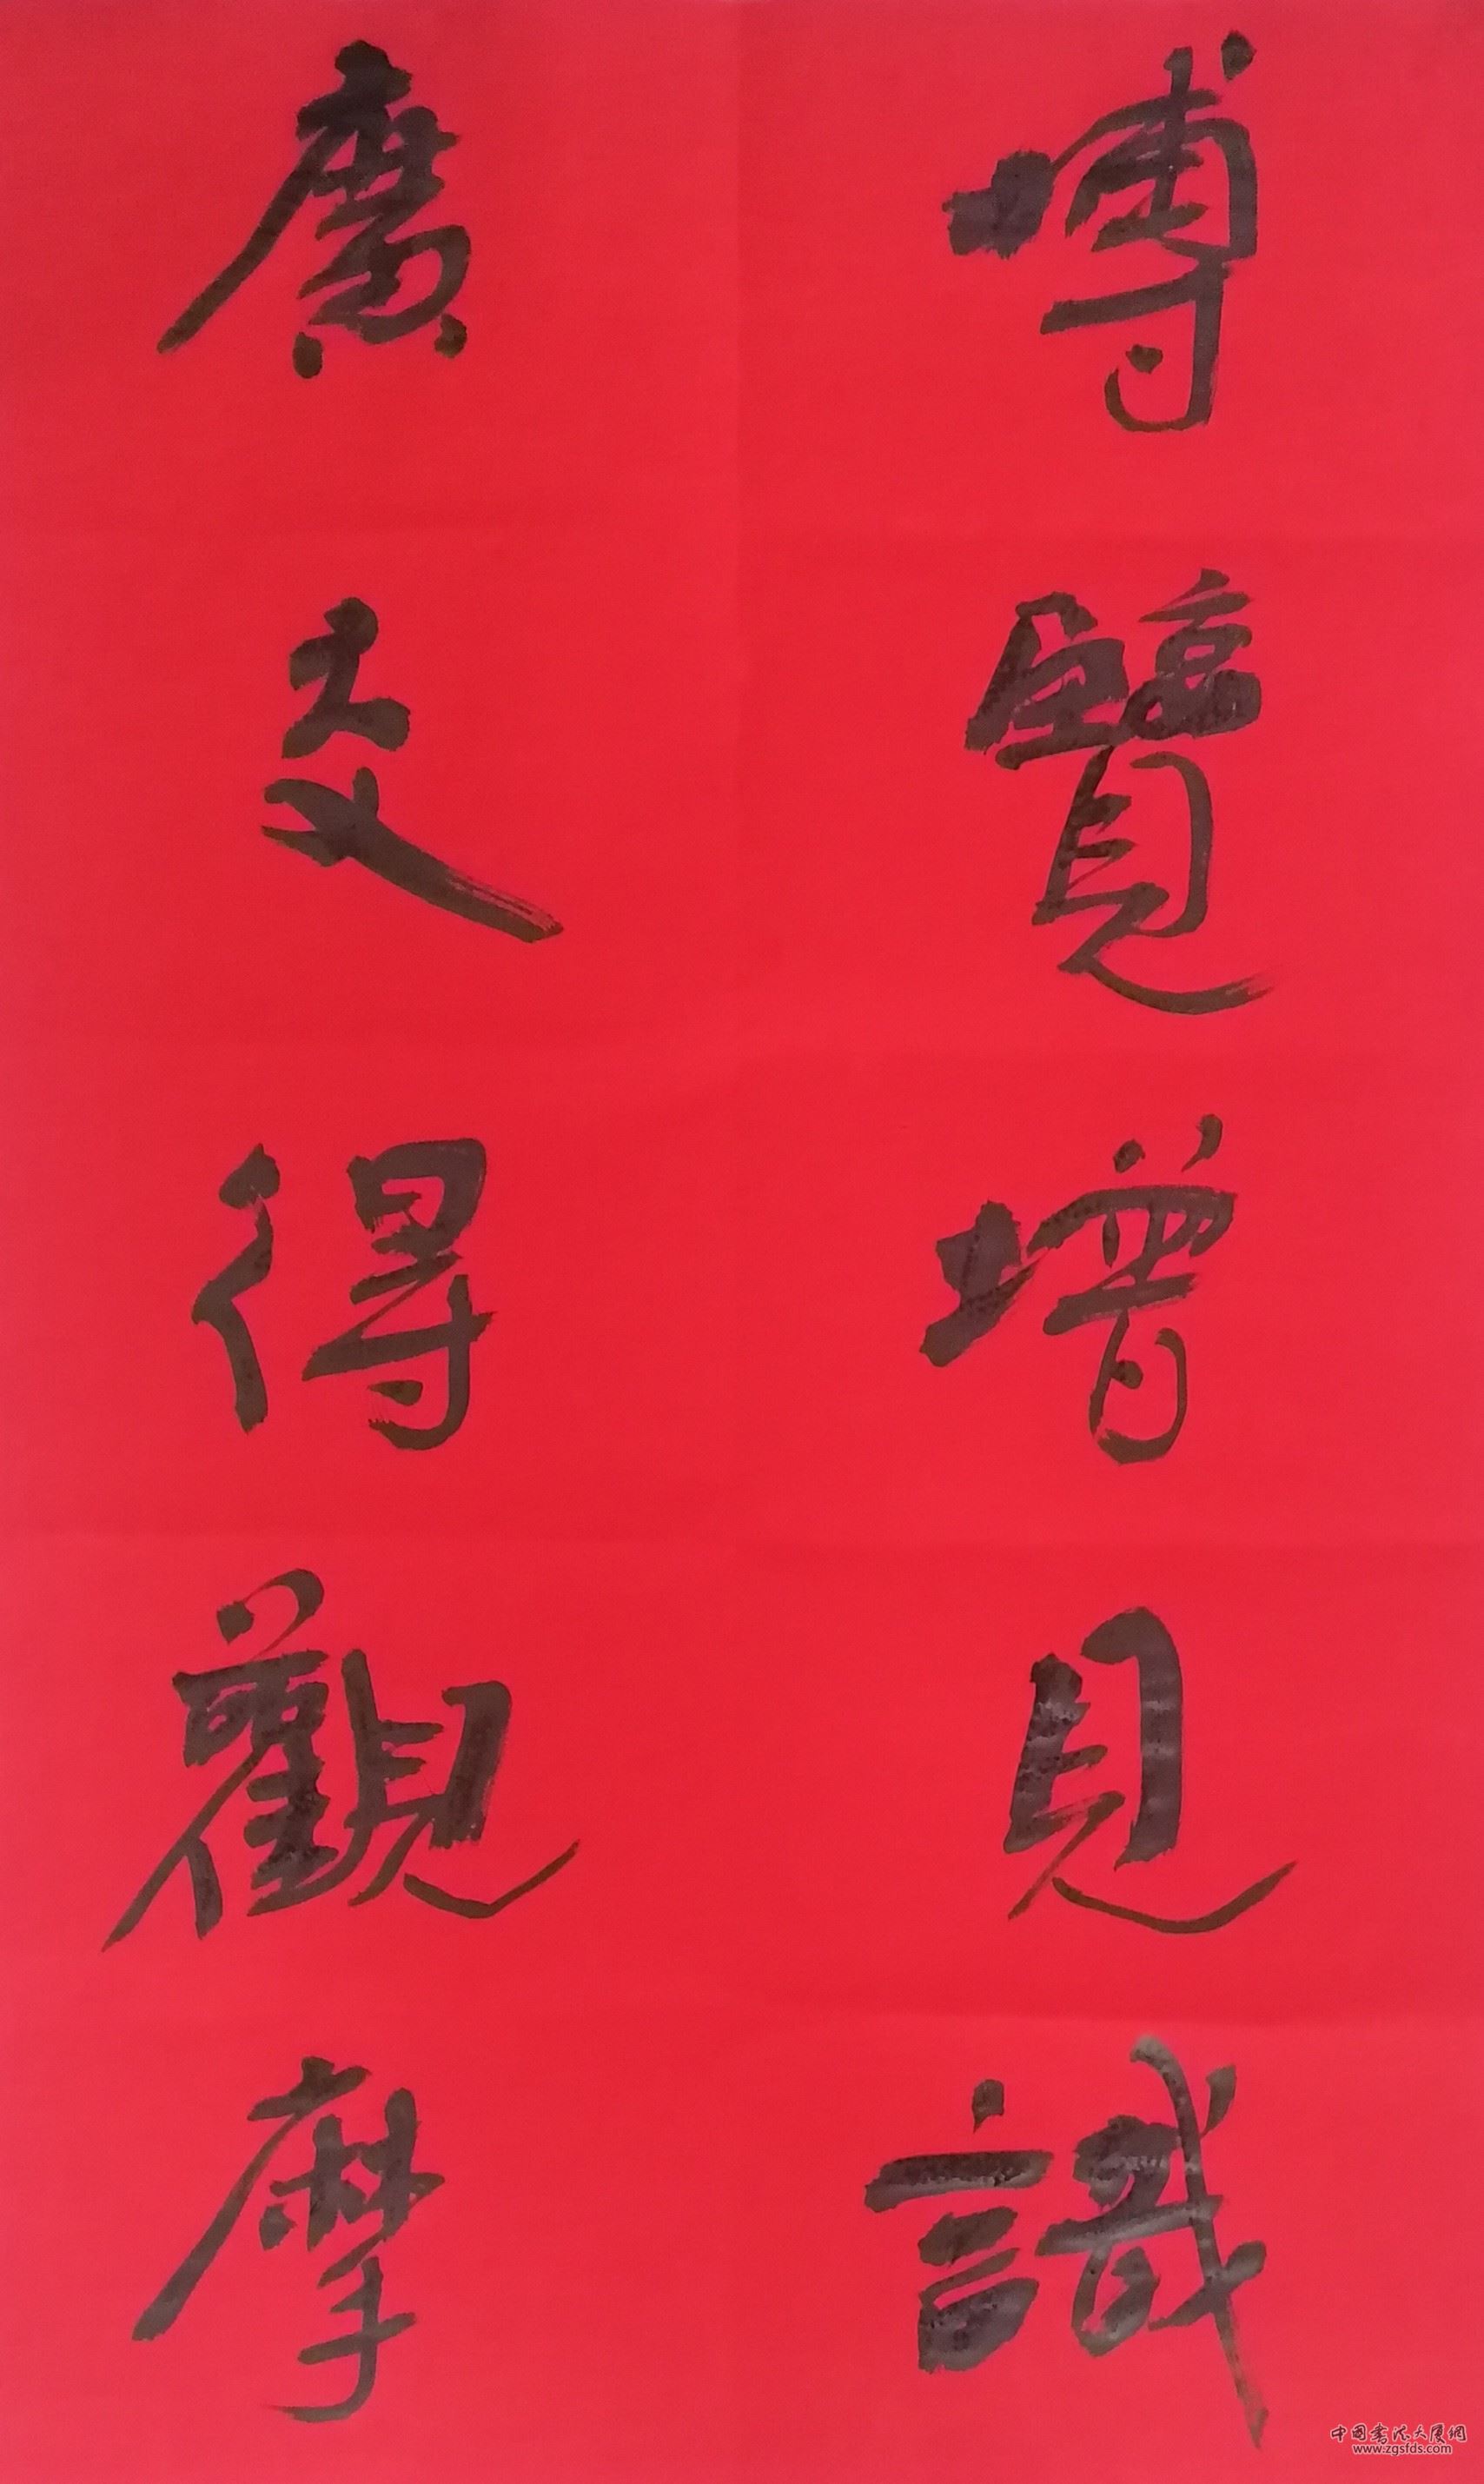 博覽增見識
廣交得觀摩
中国书法大厦網
www.zgsfds.com